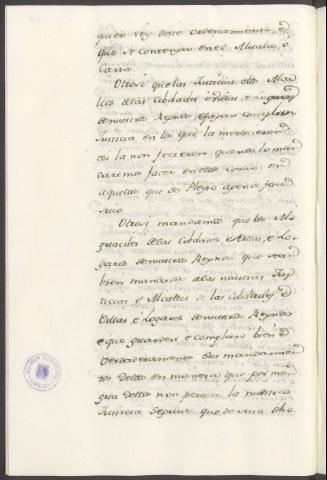 quier Ley deste ordenamiento, ó
que se contengan en el Alvala, o
Carta.
Otrosi que las Justicias e los Alcal
des delas Cibdades é villas, é logares
de nuestros Reynos, é fagan complir
Justicia en los que la merescieren
ca si la non ficieren que nos lo man
daremos facer en ellos como en
aquellos que
Otrosi mandamos que los Al
guaciles delas Cibdades é villas, é Lo
gares de nuestros Reynos que sean
bien mandados alas nuestras Jus
ticias é Alcalles de las Cibdades, é
Villas é Logares de nuestros Reynos
é que guarden é complan bien é
verdaderamente sus mandamien
tos dellos en manera que por men
gua dellos non peresca la nuestra
Justicia segunt que de suso dho.